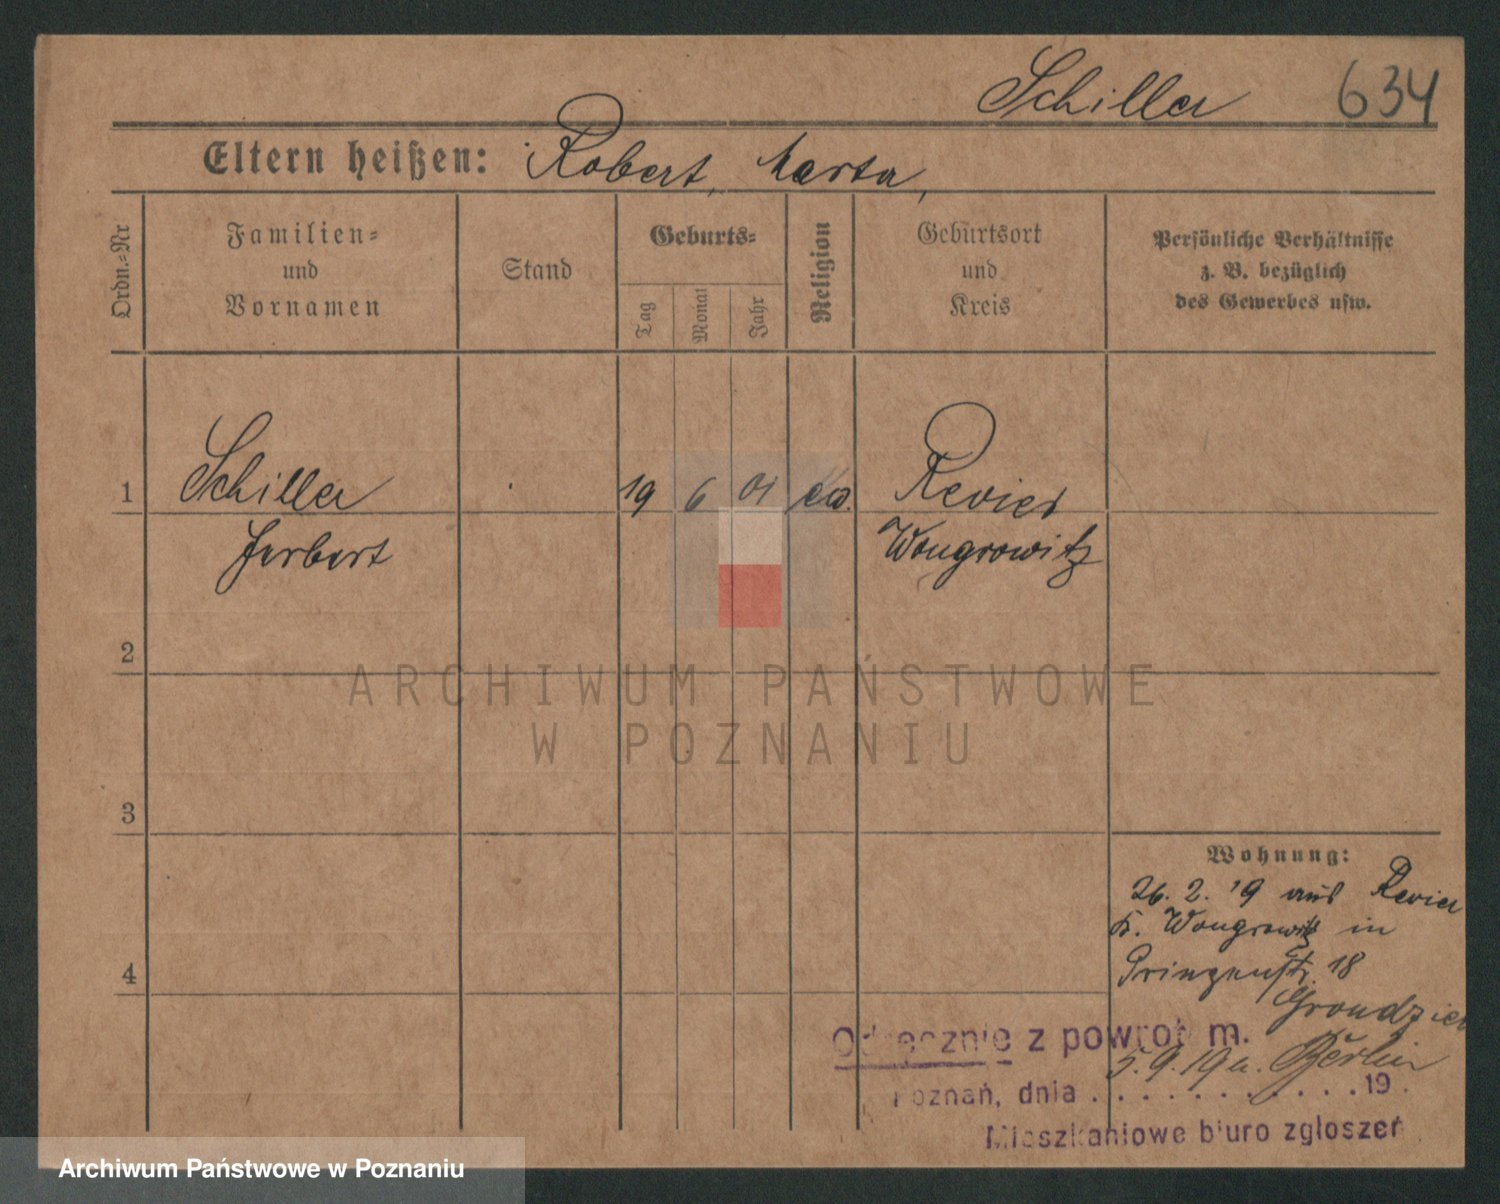 Schiller 634
Eltern heißen: Robert, Marta,
Ordn.-Nr
Familien-
und
Vornamen
Stand
Geburts-
Tag
Monat
Jahr
Religion
Geburtsort
und
Kreis
Persönliche Verhältnisse
z. B. bezüglich
des Gewerbes usw.
1 Schiller 19 6 01 ev. Revier
Herbert Wongrowitz
2
3
4
Wohnung:
26. 2. '19 aus Revier
K. Wongrowitz in
Prinzenstr. 18
Grondzien
5. 9. 19 n. Berlin
Odręcznie z powrot m.
Poznań, dnia . . . . . . . . . . . . 19 .
Mieszkaniowe biuro zgłoszeń
ARCHIWUM PAŃSTWOWE
W POZNANIU
Archiwum Państwowe w Poznaniu